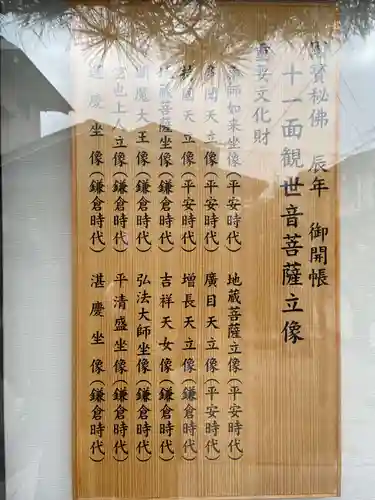 國寶秘佛 辰年 御開帳
十一面観世音菩薩立像
重要文化財
薬師如来坐像(平安時代) 地蔵菩薩立像(平安時代)
天立像(平安時代) 廣目天立像(平安時代)
持國天立像(平安時代) 増長天立像(鎌倉時代)
地蔵菩薩坐像(鎌倉時代) 吉祥天女像(鎌倉時代)
閻魔大王像(鎌倉時代) 弘法大師坐像(鎌倉時代)
空也上人立像(鎌倉時代) 平清盛坐像(鎌倉時代)
運慶坐像(鎌倉時代) 湛慶坐像(鎌倉時代)